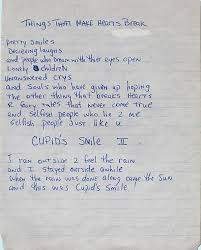 THINGS THAT MAKE HEARTS BREAK
pretty smiles
Deceiving laughs
and people who dream with their eyes open
Lonely children
Unanswered crys
and souls who have given up hoping
The other thing that breaks Hearts
R fairy tales that never come true
and selfish people who lie 2 me
selfish people just like u
CUPID'S SMILE II
I ran outside 2 feel the rain
and I stayed outside awhile
when the rain was done along came the sun
and this was Cupid's smile